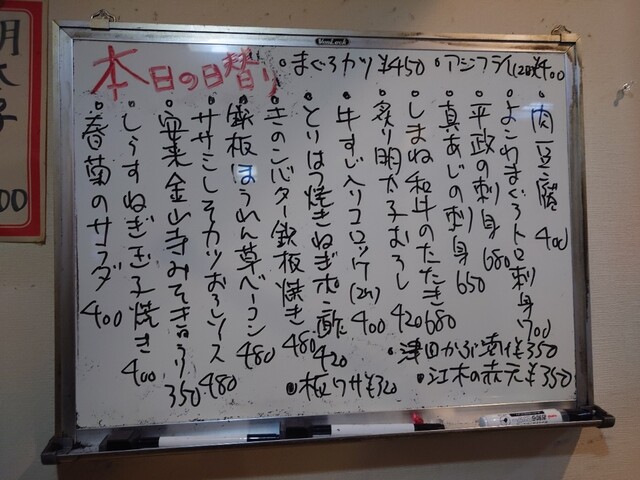 本日の日替り
・まぐろカツ ¥450
・アジフライ(2コ)¥400
・肉豆腐 400
・よこわまぐろトロ刺身 700
・平政の刺身 680
・真あじの刺身 650
・しまね和牛のたたき 680
・炙り明太子おろし 420
・牛すじ入りコロッケ(2ケ) 400
・とりはつ焼きねぎポン酢 420
・きのこバター鉄板焼き 480
・鉄板ほうれん草ベーコン 480
・ササミしそカツおろしソース 480
・安来金山寺みそきゅうり 350
・しらすねぎ玉子焼き 400
・春菊のサラダ 400
・津田かぶ漬け ¥350
・江木の赤天 ¥350
・板ワサ ¥320
明太子
00